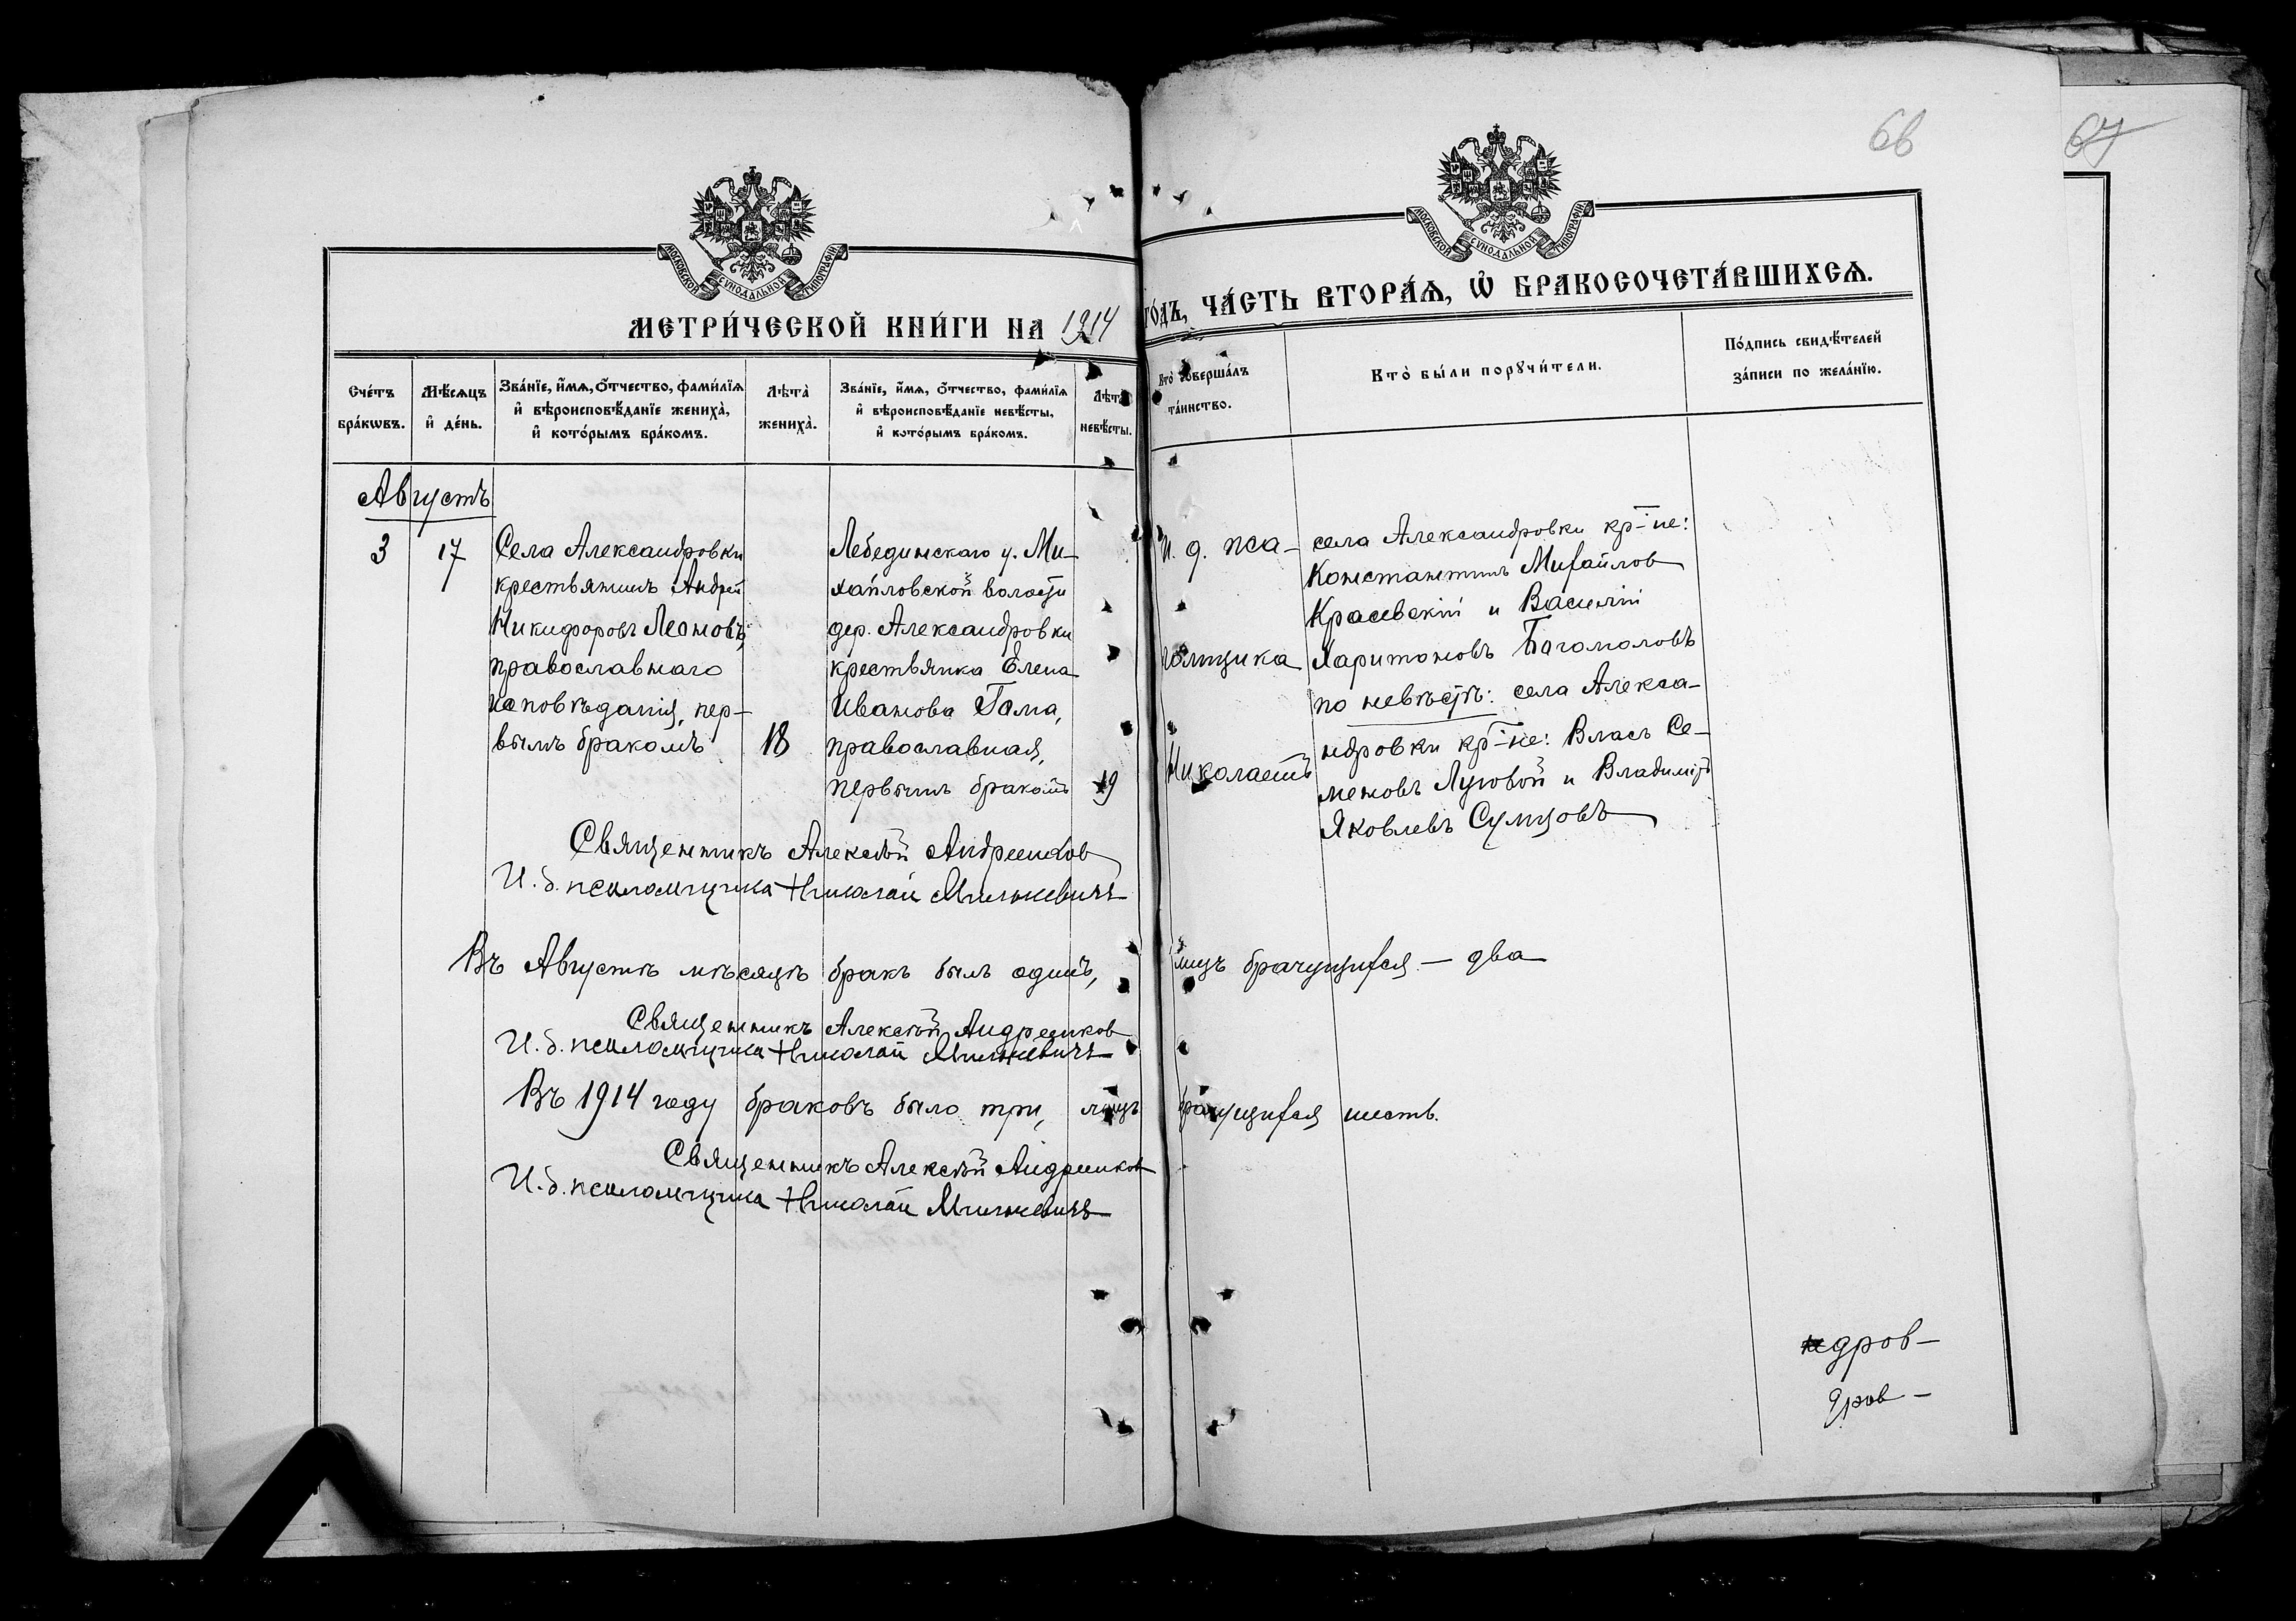 66
67
МОСКОВСКОЙ СѴНОДАЛЬНОЙ ТИПОГРАФІИ
МОСКОВСКОЙ СѴНОДАЛЬНОЙ ТИПОГРАФІИ
МЕТРИ́ЧЕСКОЙ КНИ́ГИ НА 1914
ГО́ДЪ, ЧА́СТЬ ВТОРА́Ѧ, Ѽ БРАКОСОЧЕТА́ВШИХСѦ.
Сче́тъ
бра́кѡвъ.
Мѣ́сѧцъ
и҆ де́нь.
Зва́нїе, и҆́мѧ, ѻ҆́тчество, фами́лїѧ
и҆ вѣроисповѣ́данїе жениха̀,
и҆ кото́рымъ бра́комъ.
Лѣта̀
жениха̀.
Зва́нїе, и҆́мѧ, ѻ҆́тчество, фами́лїѧ
и҆ вѣроисповѣ́данїе невѣ́сты,
и҆ кото́рымъ бра́комъ.
Лѣта̀
невѣ́сты.
Кто̀ соверша́лъ
та́инство.
Кто̀ бы́ли порꙋчи́тели.
По́дпись свидѣ́телей
за́писи по жела́нїю.
Августъ
3
17
Села Александровки
крестьянинъ Андрей
Никифоровъ Леоновъ,
православнаго
исповѣданія, пер-
вымъ бракомъ
18
Лебединскаго у. Ми-
хайловской волости
дер. Александровки
крестьянка Елена
Иванова Гама,
православная,
первымъ бракомъ
19
И. д. пса-
ломщика
Николаемъ
села Александровки кр-не:
Константинъ Михайлов
Красевскій и Василій
Харитоновъ Богомоловъ
по невѣстѣ: села Алекса-
ндровки кр-не: Власъ Се-
меновъ Луговой и Владиміръ
Яковлевъ Сумцовъ
Священникъ Алексѣй Андреенков
И. д. псаломщика Николай Милькевичъ
Въ Августѣ мѣсяцѣ бракъ былъ одинъ, лицъ брачущихся – два
Священникъ Алексѣй Андреенков
И. д. псаломщика Николай Милькевичъ
Въ 1914 году браковъ было три, лицъ брачущихся шесть.
Священникъ Алексѣй Андреенков
И. д. псаломщика Николай Милькевичъ
ндров-
дров-